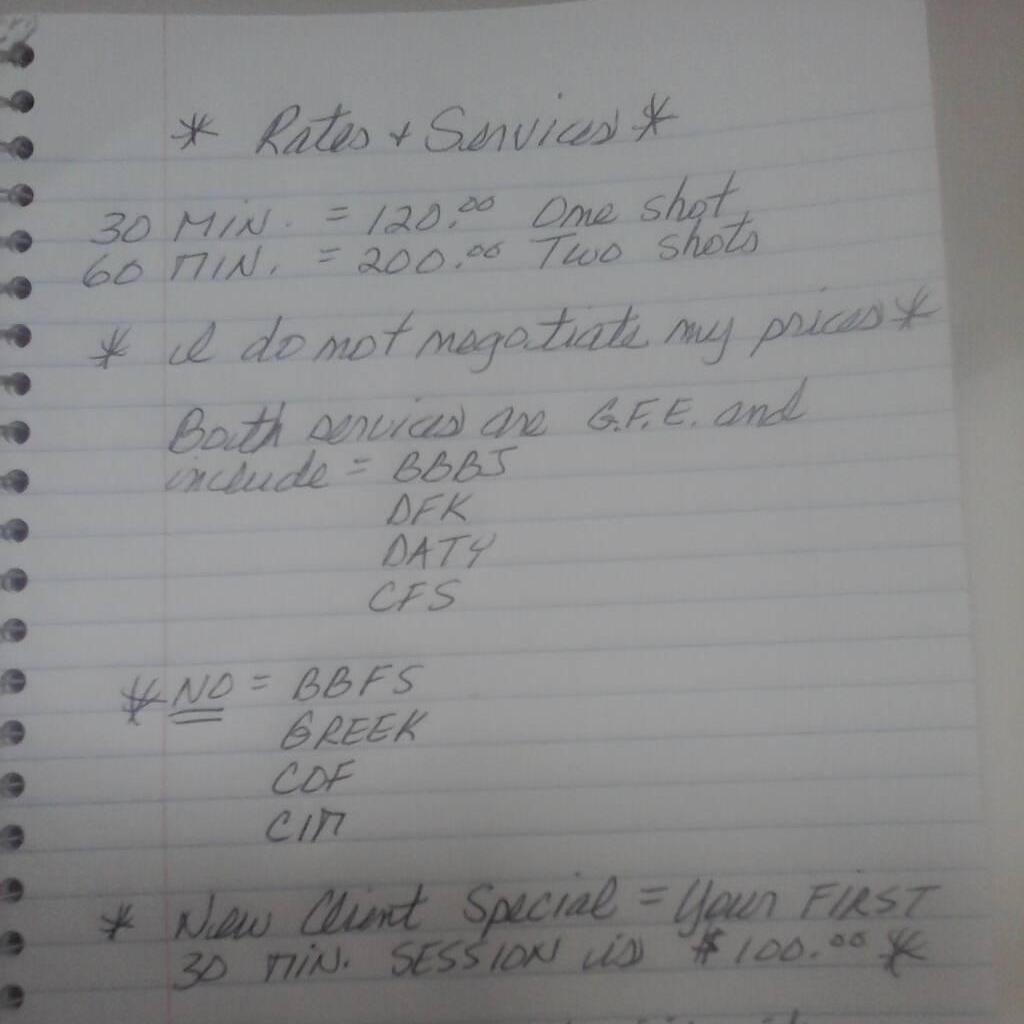 * Rates + Services *
30 MIN. = 120.00 One shot
60 MIN. = 200.00 Two shots
* I do not negotiate my prices *
Both services are G.F.E. and
include = BBBJ
DFK
DATY
CFS
* NO = BBFS
GREEK
COF
CIM
* New Client Special = Your FIRST
30 MIN. SESSION is $100.00 *